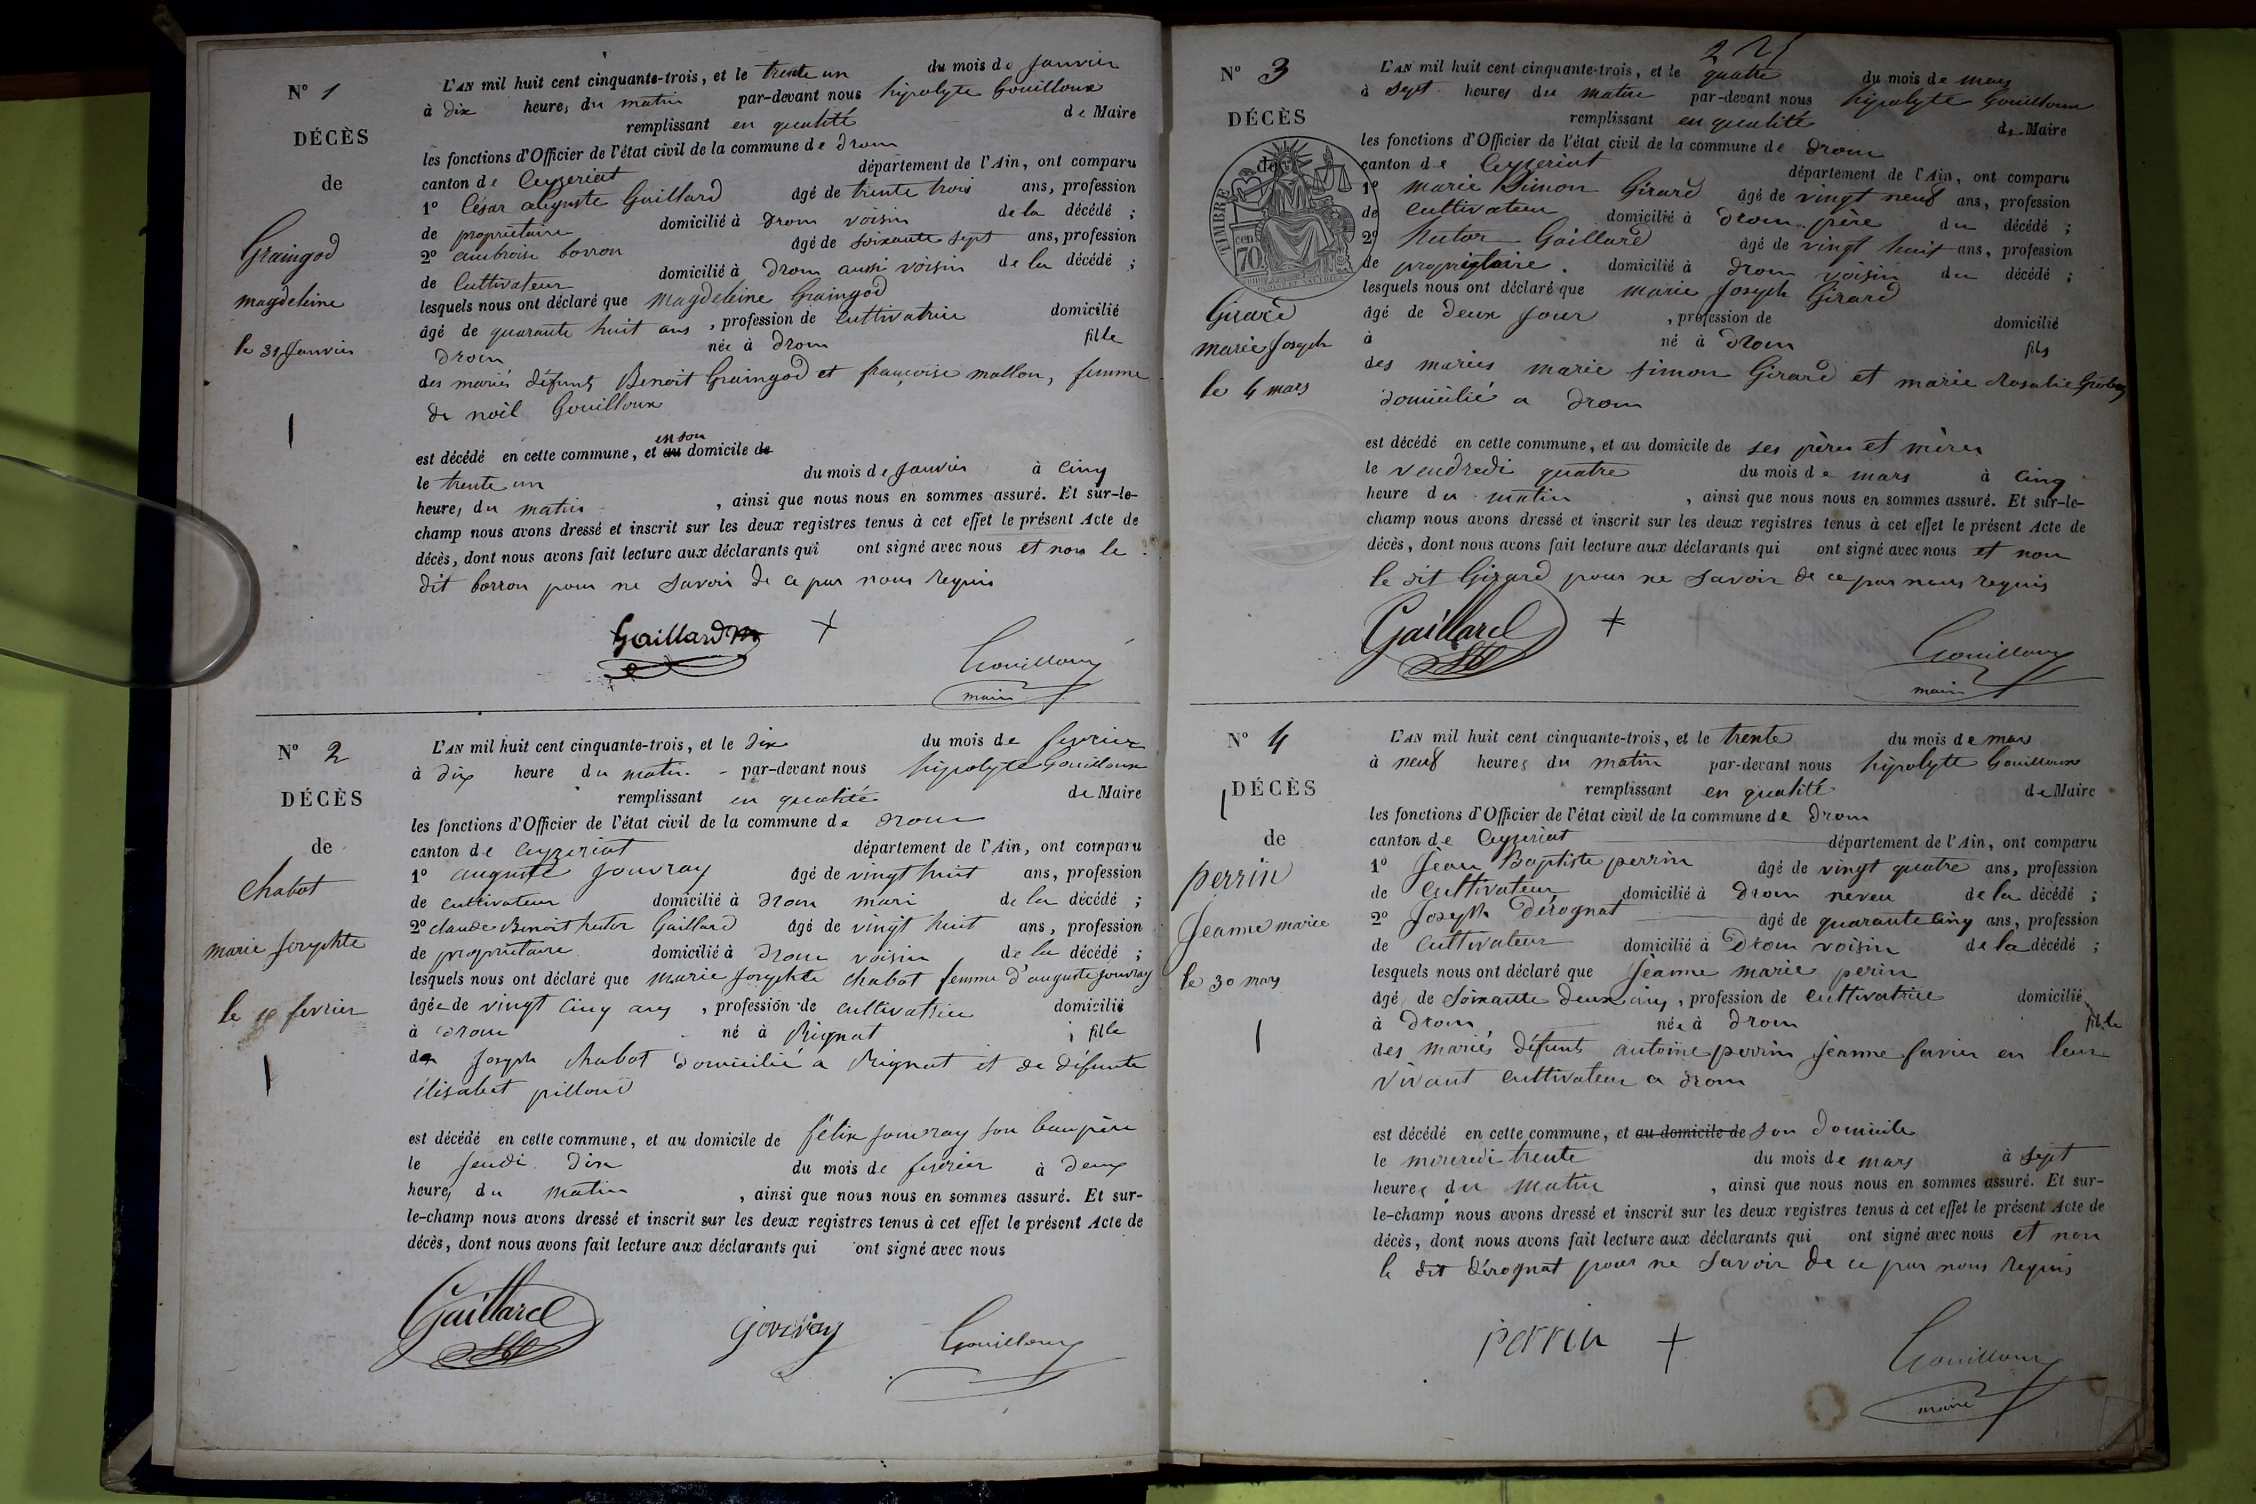 N° 1
DÉCÈS
de
Graingod
magdeleine
le 31 Janvier
L'AN mil huit cent cinquante-trois, et le trente un du mois de Janvier
à dix heures du matin par-devant nous hipolyte Gouilloux
remplissant en qualité de Maire
les fonctions d'Officier de l'état civil de la commune de drom
canton de Ceyzeriat département de l'Ain, ont comparu
1° César auguste Gaillard âgé de trente trois ans, profession
de propriétaire domicilié à drom voisin de la décédé ;
2° ambroise borron âgé de soixante sept ans, profession
de Cultivateur domicilié à drom aussi voisin de la décédé ;
lesquels nous ont déclaré que magdeleine Graingod
âgé de quarante huit ans, profession de cultivatrice domicilié
drom née à drom fille
des mariés défunts Benoit Graingod et françoise mallon, femme
de noël Gouilloux
est décédé en cette commune, et au en son domicile de
le trente un du mois de Janvier à cinq
heures du matin, ainsi que nous nous en sommes assuré. Et sur-le-
champ nous avons dressé et inscrit sur les deux registres tenus à cet effet le présent Acte de
décès, dont nous avons fait lecture aux déclarants qui ont signé avec nous et non le
dit borron pour ne savoir de ce par nous requis
Gaillard +
Gouilloux
maire
N° 2
DÉCÈS
de
chabot
marie Josephte
le 10 fevrier
L'AN mil huit cent cinquante-trois, et le dix du mois de fevrier
à dix heure du matin par-devant nous hipolyte Gouilloux
remplissant en qualité de Maire
les fonctions d'Officier de l'état civil de la commune de drom
canton de Ceyzeriat département de l'Ain, ont comparu
1° auguste Jouvray âgé de vingt huit ans, profession
de cultivateur domicilié à drom mari de la décédé ;
2° claude Benoit hector Gaillard âgé de vingt huit ans, profession
de propriétaire domicilié à drom voisin de la décédé ;
lesquels nous ont déclaré que marie Josephte chabot femme d'auguste Jouvray
âgée de vingt cinq ans, profession de cultivatrice domicilié
à drom né à Rignat ; fille
de Joseph chabot domicilié a Rignat et de défunte
élisabet pilloud
est décédé en cette commune, et au domicile de félix Jouvray son beaupère
le Jeudi dix du mois de fevrier à deux
heures du matin, ainsi que nous nous en sommes assuré. Et sur-
le-champ nous avons dressé et inscrit sur les deux registres tenus à cet effet le présent Acte de
décès, dont nous avons fait lecture aux déclarants qui ont signé avec nous
Gaillard Jouvray Gouilloux
225
N° 3
DÉCÈS
de
TIMBRE
70 cen
Girard
marie Joseph
le 4 mars
L'AN mil huit cent cinquante-trois, et le quatre du mois de mars
à sept heures du matin par-devant nous hipolyte Gouilloux
remplissant en qualité de Maire
les fonctions d'Officier de l'état civil de la commune de drom
canton de Ceyzeriat département de l'Ain, ont comparu
1° marie Simon Girard âgé de vingt neuf ans, profession
de cultivateur domicilié à drom père du décédé ;
2° hector Gaillard âgé de vingt huit ans, profession
de propriétaire domicilié à drom voisin du décédé ;
lesquels nous ont déclaré que marie Joseph Girard
âgé de deux Jour, profession de domicilié
à né à drom fils
des mariés marie simon Girard et marie Rosalie
domicilié a drom
est décédé en cette commune, et au domicile de ses pères et mères
le vendredi quatre du mois de mars à cinq
heure du matin, ainsi que nous nous en sommes assuré. Et sur-le-
champ nous avons dressé et inscrit sur les deux registres tenus à cet effet le présent Acte de
décès, dont nous avons fait lecture aux déclarants qui ont signé avec nous et non
le dit Girard pour ne savoir de ce par nous requis
Gaillard +
Gouilloux
maire
N° 4
DÉCÈS
de
perrin
Jeanne marie
le 30 mars
L'AN mil huit cent cinquante-trois, et le trente du mois de mars
à neuf heures du matin par-devant nous hipolyte Gouilloux
remplissant en qualité de Maire
les fonctions d'Officier de l'état civil de la commune de drom
canton de Ceyzeriat département de l'Ain, ont comparu
1° Jean Baptiste perrin âgé de vingt quatre ans, profession
de Cultivateur domicilié à drom neveu de la décédé ;
2° Joseph Dérognat âgé de quarante cinq ans, profession
de Cultivateur domicilié à Drom voisin de la décédé ;
lesquels nous ont déclaré que Jeanne marie perin
âgé de soixante deux ans, profession de cultivatrice domicilié
à Drom née à drom fille
des mariés défunts antoine perrin Jeanne favier en leur
vivant cultivateur a drom
est décédé en cette commune, et au domicile de son domicile
le mercredi trente du mois de mars à sept
heures du matin, ainsi que nous nous en sommes assuré. Et sur-
le-champ nous avons dressé et inscrit sur les deux registres tenus à cet effet le présent Acte de
décès, dont nous avons fait lecture aux déclarants qui ont signé avec nous et non
le dit dérognat pour ne savoir de ce par nous requis
Perrin +
Gouilloux
maire